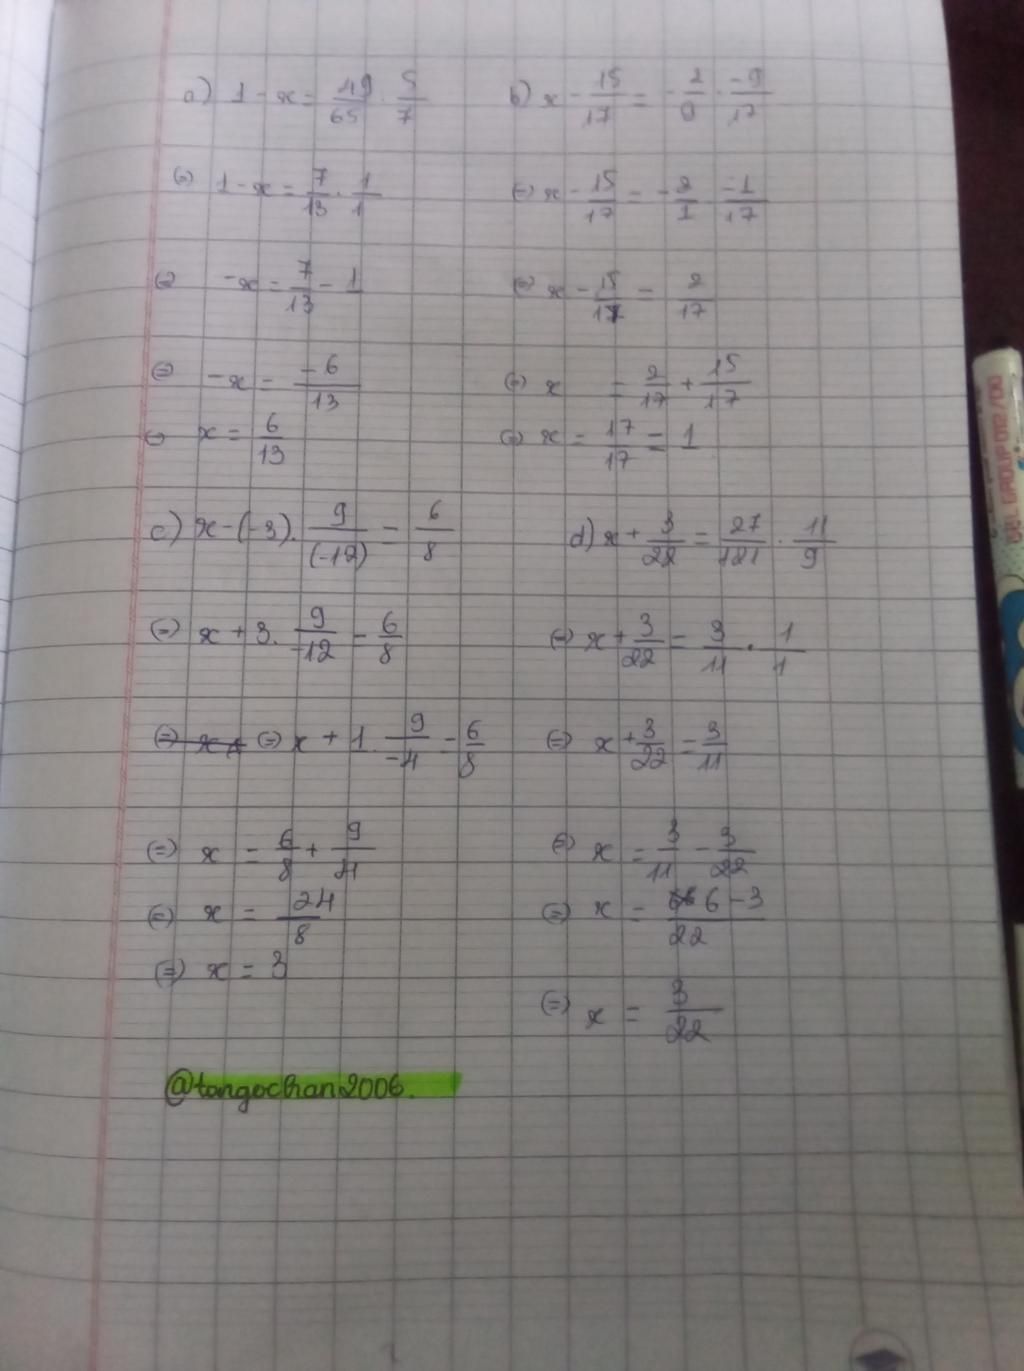 a) 1 - x = 49/65 . 5/7
(=) 1 - x = 7/13 . 1/1
(=) -x = 7/13 - 1
(=) -x = -6/13
(=) x = 6/13
b) x - 15/17 = -2/9 . -9/17
(=) x - 15/17 = -2/1 . -1/17
(=) x - 15/17 = 2/17
(=) x = 2/17 + 15/17
(=) x = 17/17 = 1
c) x - (-3) . 9/(-12) = 6/8
(=) x + 3 . 9/-12 = 6/8
(=) x (=) x + 1 . 9/-4 = 6/8
(=) x = 6/8 + 9/4
(=) x = 24/8
(=) x = 3
d) x + 3/22 = 27/121 . 11/9
(=) x + 3/22 = 3/11 . 1/1
(=) x + 3/22 = 3/11
(=) x = 3/11 - 3/22
(=) x = 6 - 3/22
(=) x = 3/22
@tongochan2006.